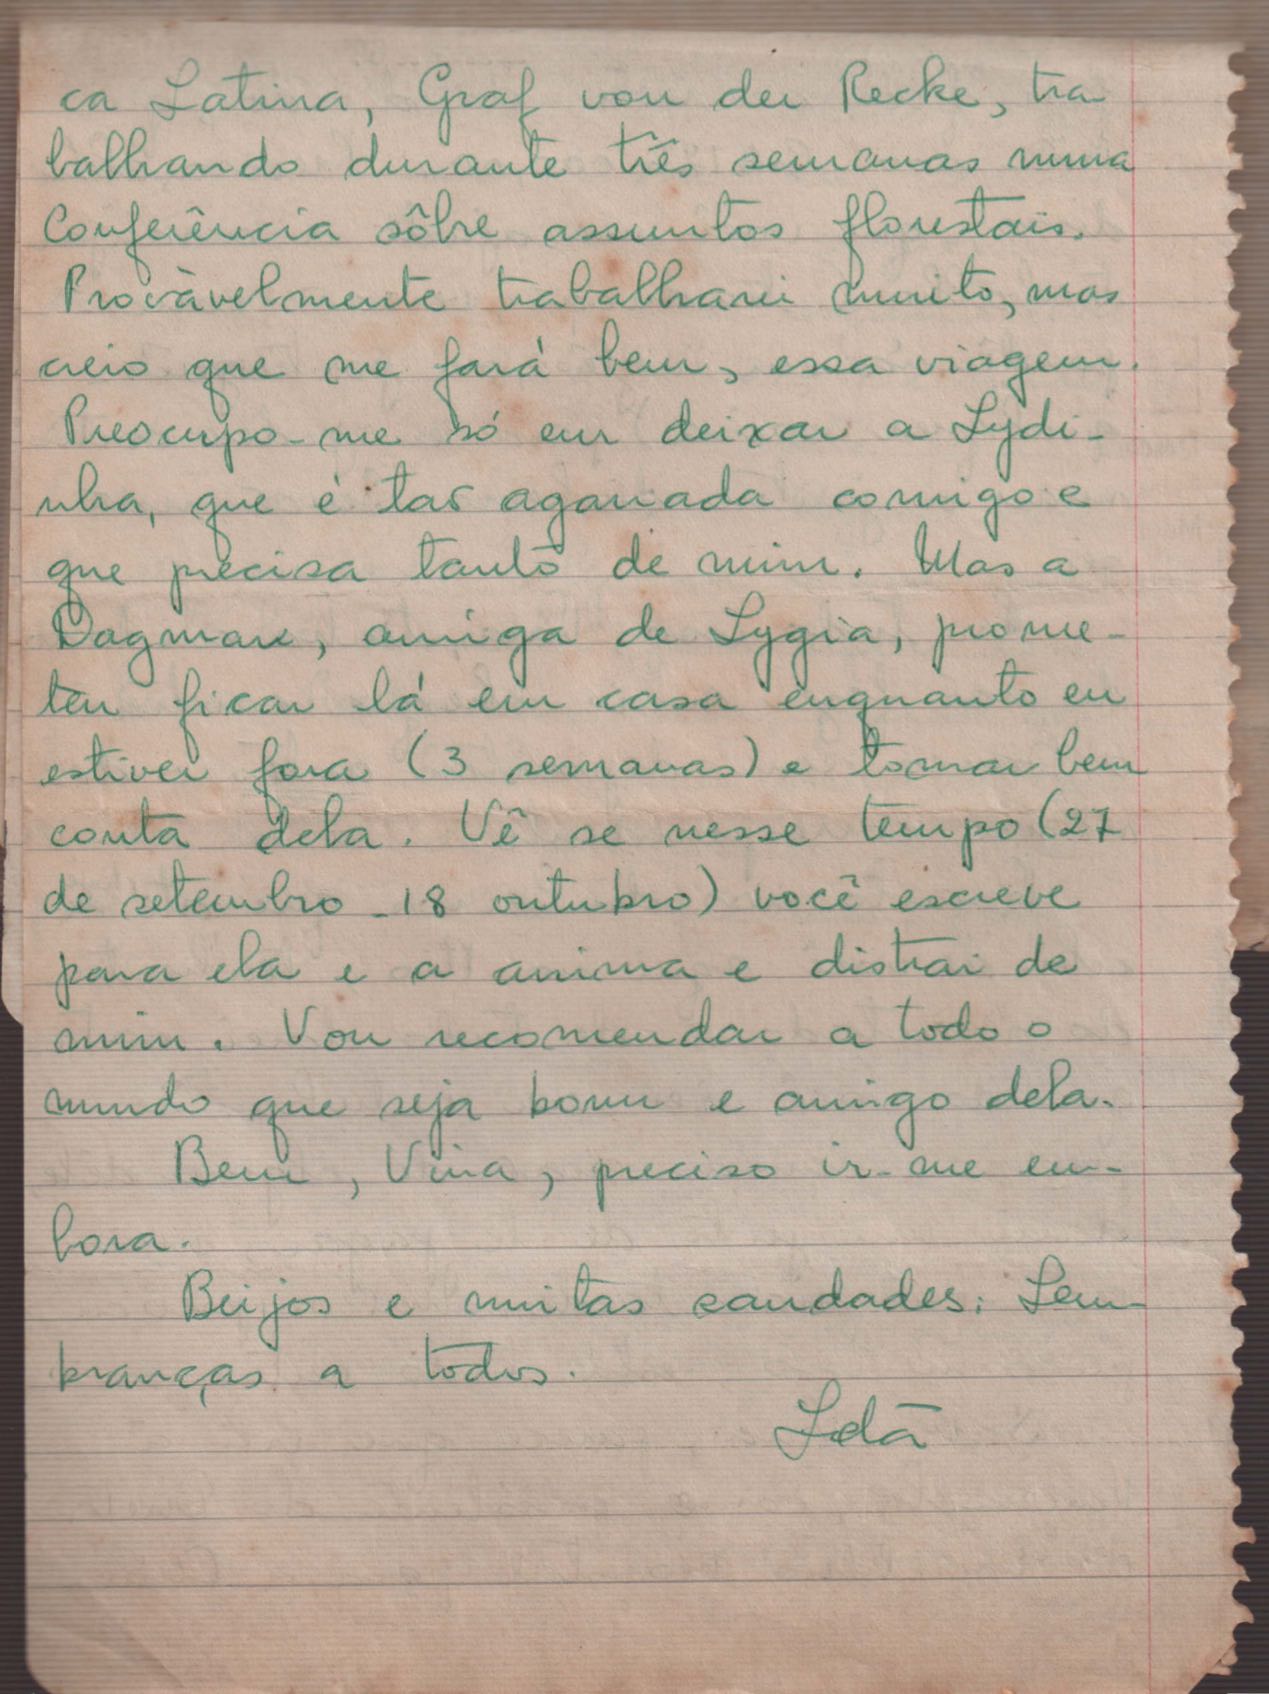 ca Latina, Graf von der Recke, tra-
balhando durante três semanas numa
Conferência sôbre assuntos florestais.
Provàvelmente trabalharei muito, mas
creio que me fará bem, essa viagem.
Preocupo-me só em deixar a Lydi-
nha, que é tão agarrada comigo e
que precisa tanto de mim. Mas a
Dagmar, amiga de Lygia, prome-
teu ficar lá em casa enquanto eu
estiver fora (3 semanas) e tomar bem
conta dela. Vê se nesse tempo (27
de setembro - 18 outubro) você escreve
para ela e a anima e distrai de
mim. Vou recomendar a todo o
mundo que seja bom e amigo dela.
Bem, Vina, preciso ir-me em-
bora.
Beijos e muitas saudades. Lem-
branças a todos.